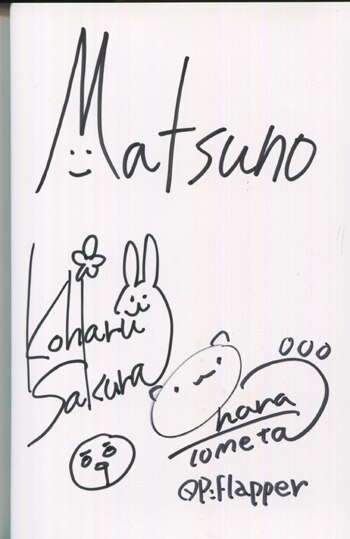 Matsuno
Koharu
Sakura
Ohara
Tometa
@P:flapper